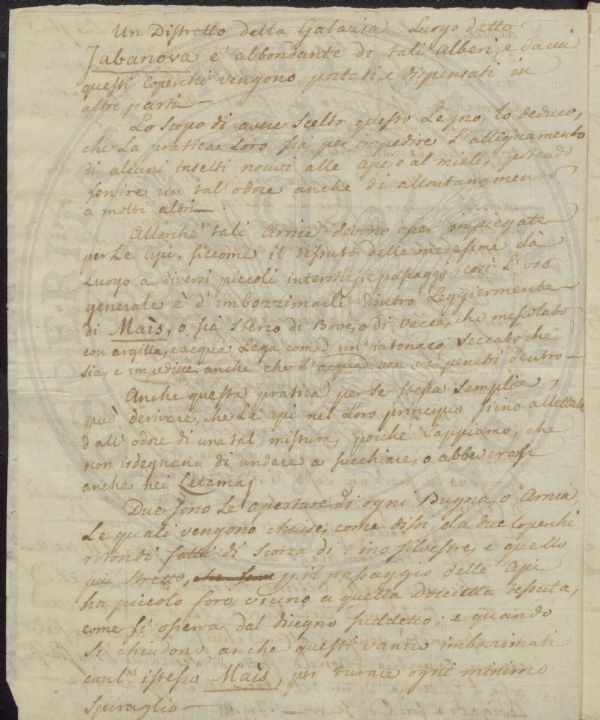 Un Distretto della Galazia Luogo detto
Jabanova è abbondante di tali Alberi, e da cui
questi Coperchi vengono portati e dispensati in
altre parti —
Lo Scopo di aver scelto questo Legno, lo deduco,
che la pratica loro sia per impedire l'allignamento
di alcuni insetti nocivi alle Api, e al miele, potendo
servire un tal odore anche di allontanamento
a molti altri —
Allorchè tali Arnie devono esser impiegate
per le Api, siccome il tessuto delle medesime dà
Luogo a diversi piccoli interstizj e passaggi, così l'uso
generale è d'imbozzimarli dentro Leggiermente
di Maìs, o sia Sterco di Bove, o di Vacca, che mescolato
con argilla, e acqua, Lega come un intonaco seccato che
sia, e impedisce anche che l'acqua non vi penetri dentro —
Anche questa pratica per se stessa semplice,
può derivare, che le api nel Loro principio sieno allettate
dall'odore di una tal mistura, poichè sappiamo, che
non isdegnano di andare a succhiare, o abbeverarsi
anche nei Letamaj
Due sono le aperture di ogni Bugna, o Arnia
Le quali vengono chiuse, come dissi, da due Coperchi
rotondi fatti di Scorza di Pino silvestre, e quello
più stretto, che serve il passaggio delle Api
ha piccolo foro vicino a quella tessuta,
come si osserva dal disegno suddetto; e quando
si chiudono anche questi vanno imbozimati
coll' istesso Maìs, per turare ogni minimo
Spiraglio —